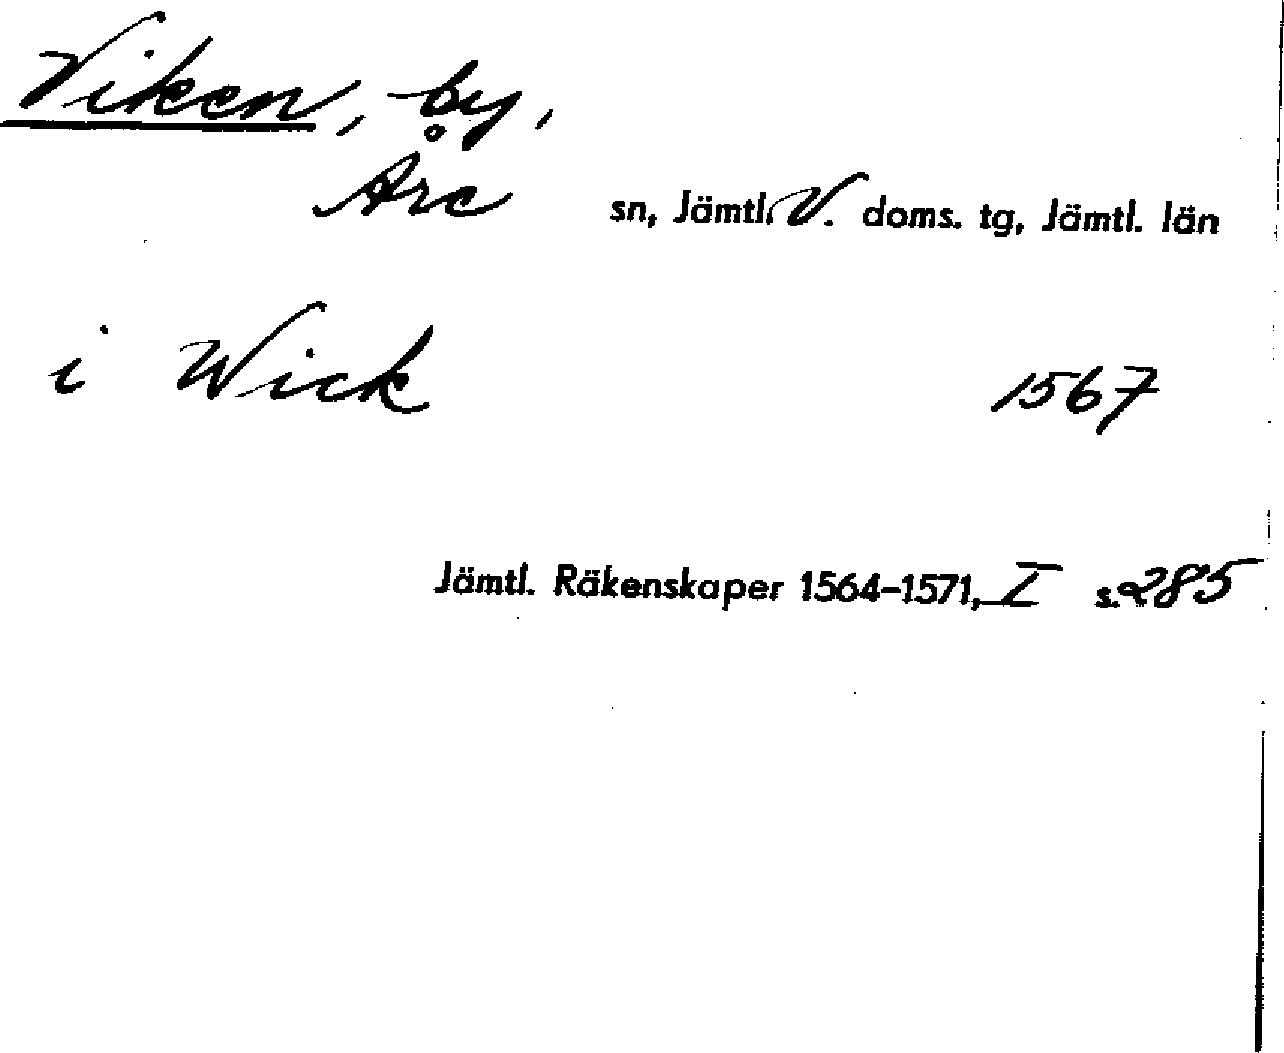 Viken, by,
Åre sn, Jämtl. V. doms. tg, Jämtl. län
i Wick 1567
Jämtl. Räkenskaper 1564-1571, I s. 285